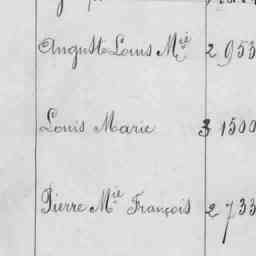 Auguste Louis Mie 2 953
Louis Marie 3 1500
Pierre Mie François 2 733